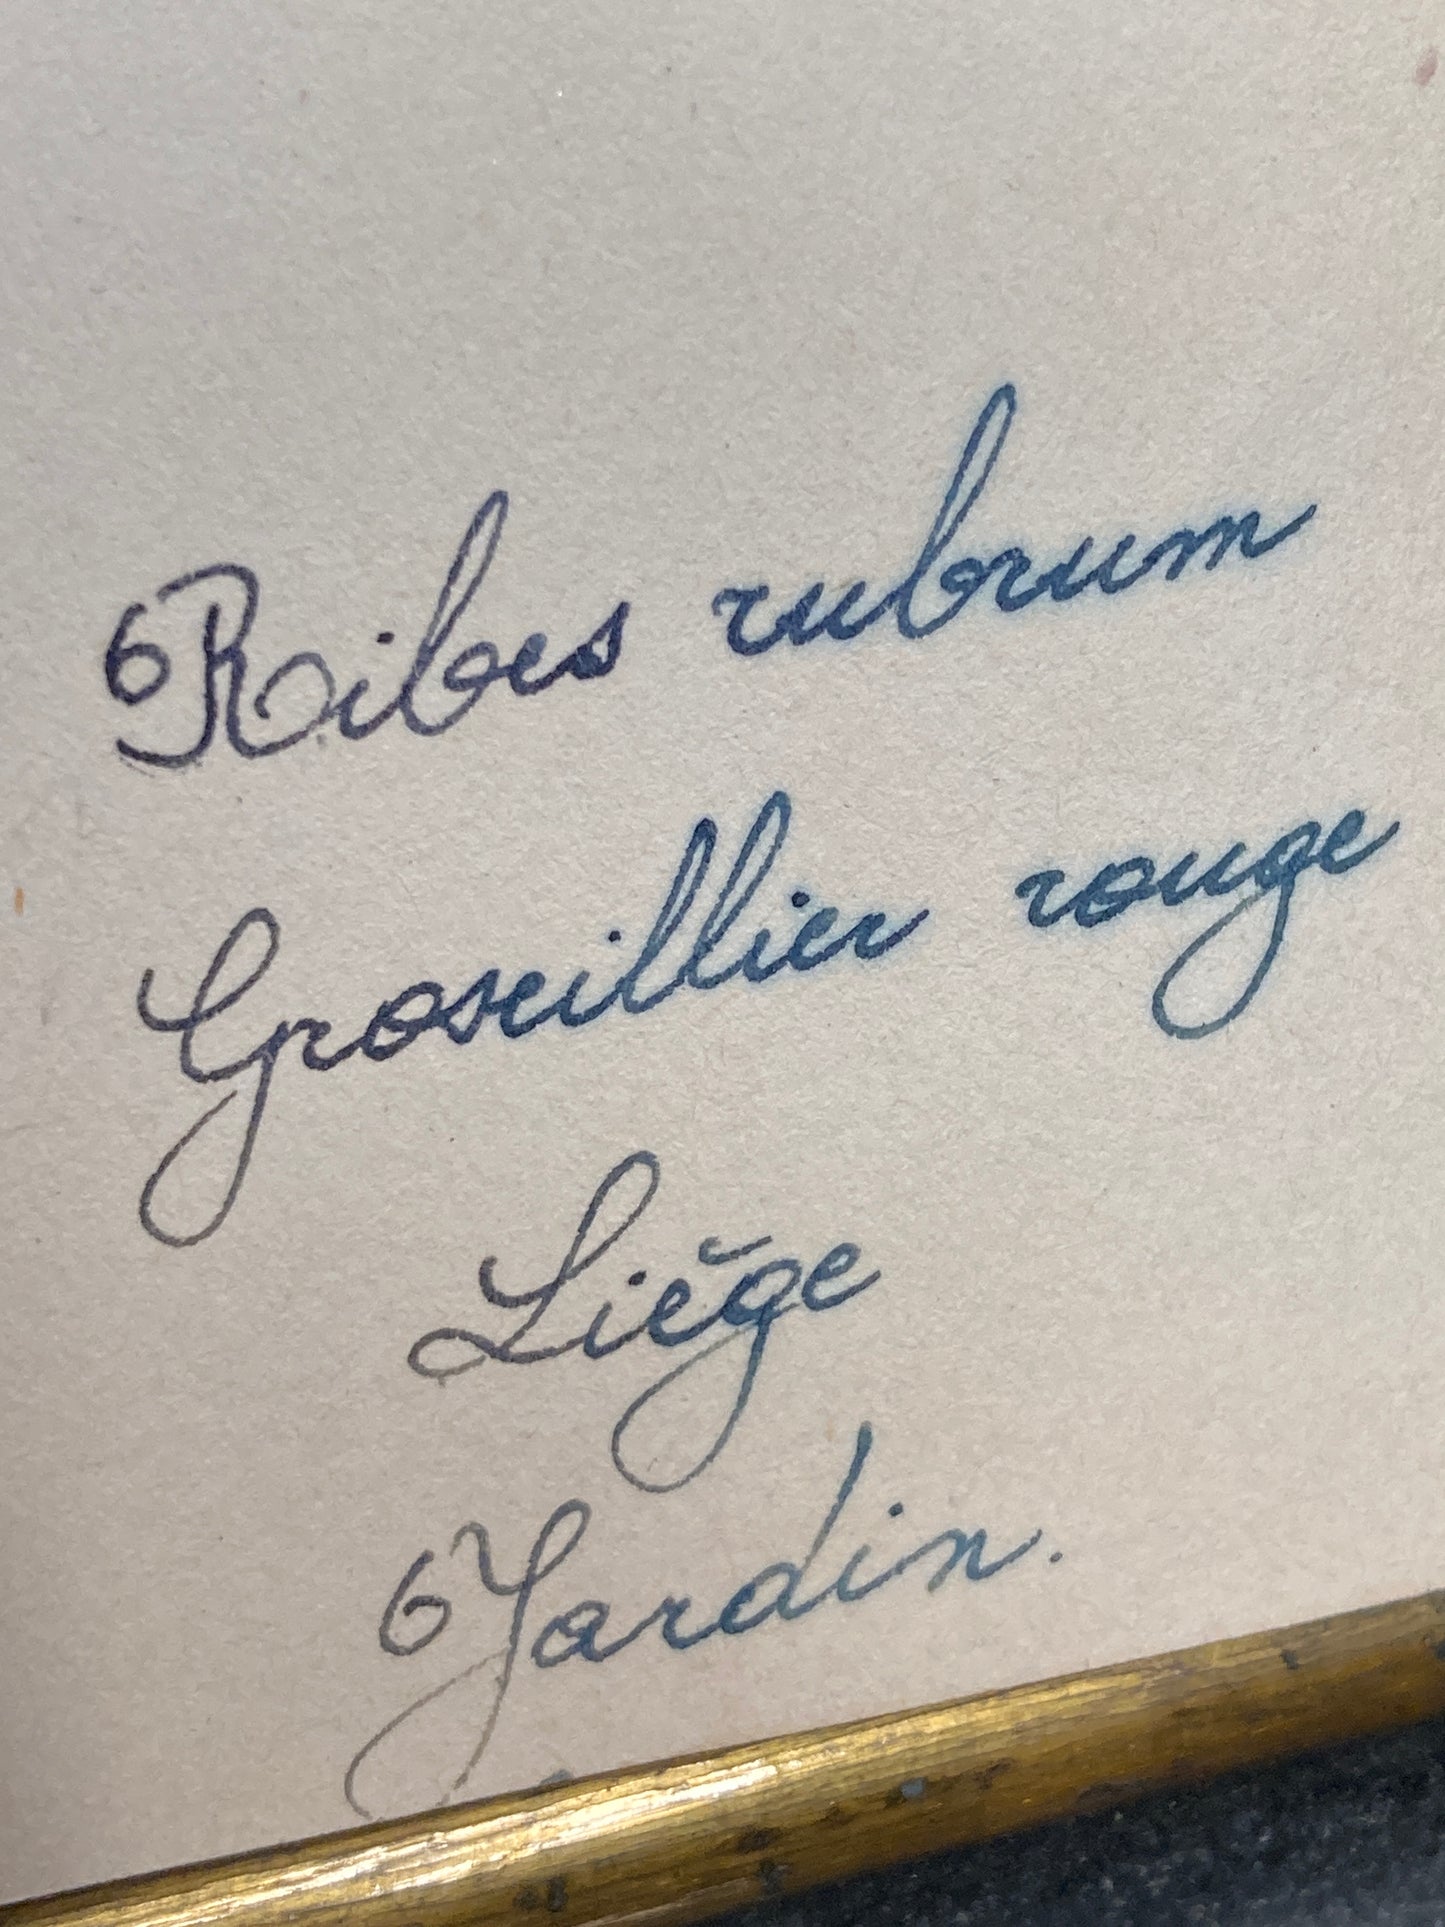 Ribes rubrum
Groseillier rouge
Liège
Jardin.